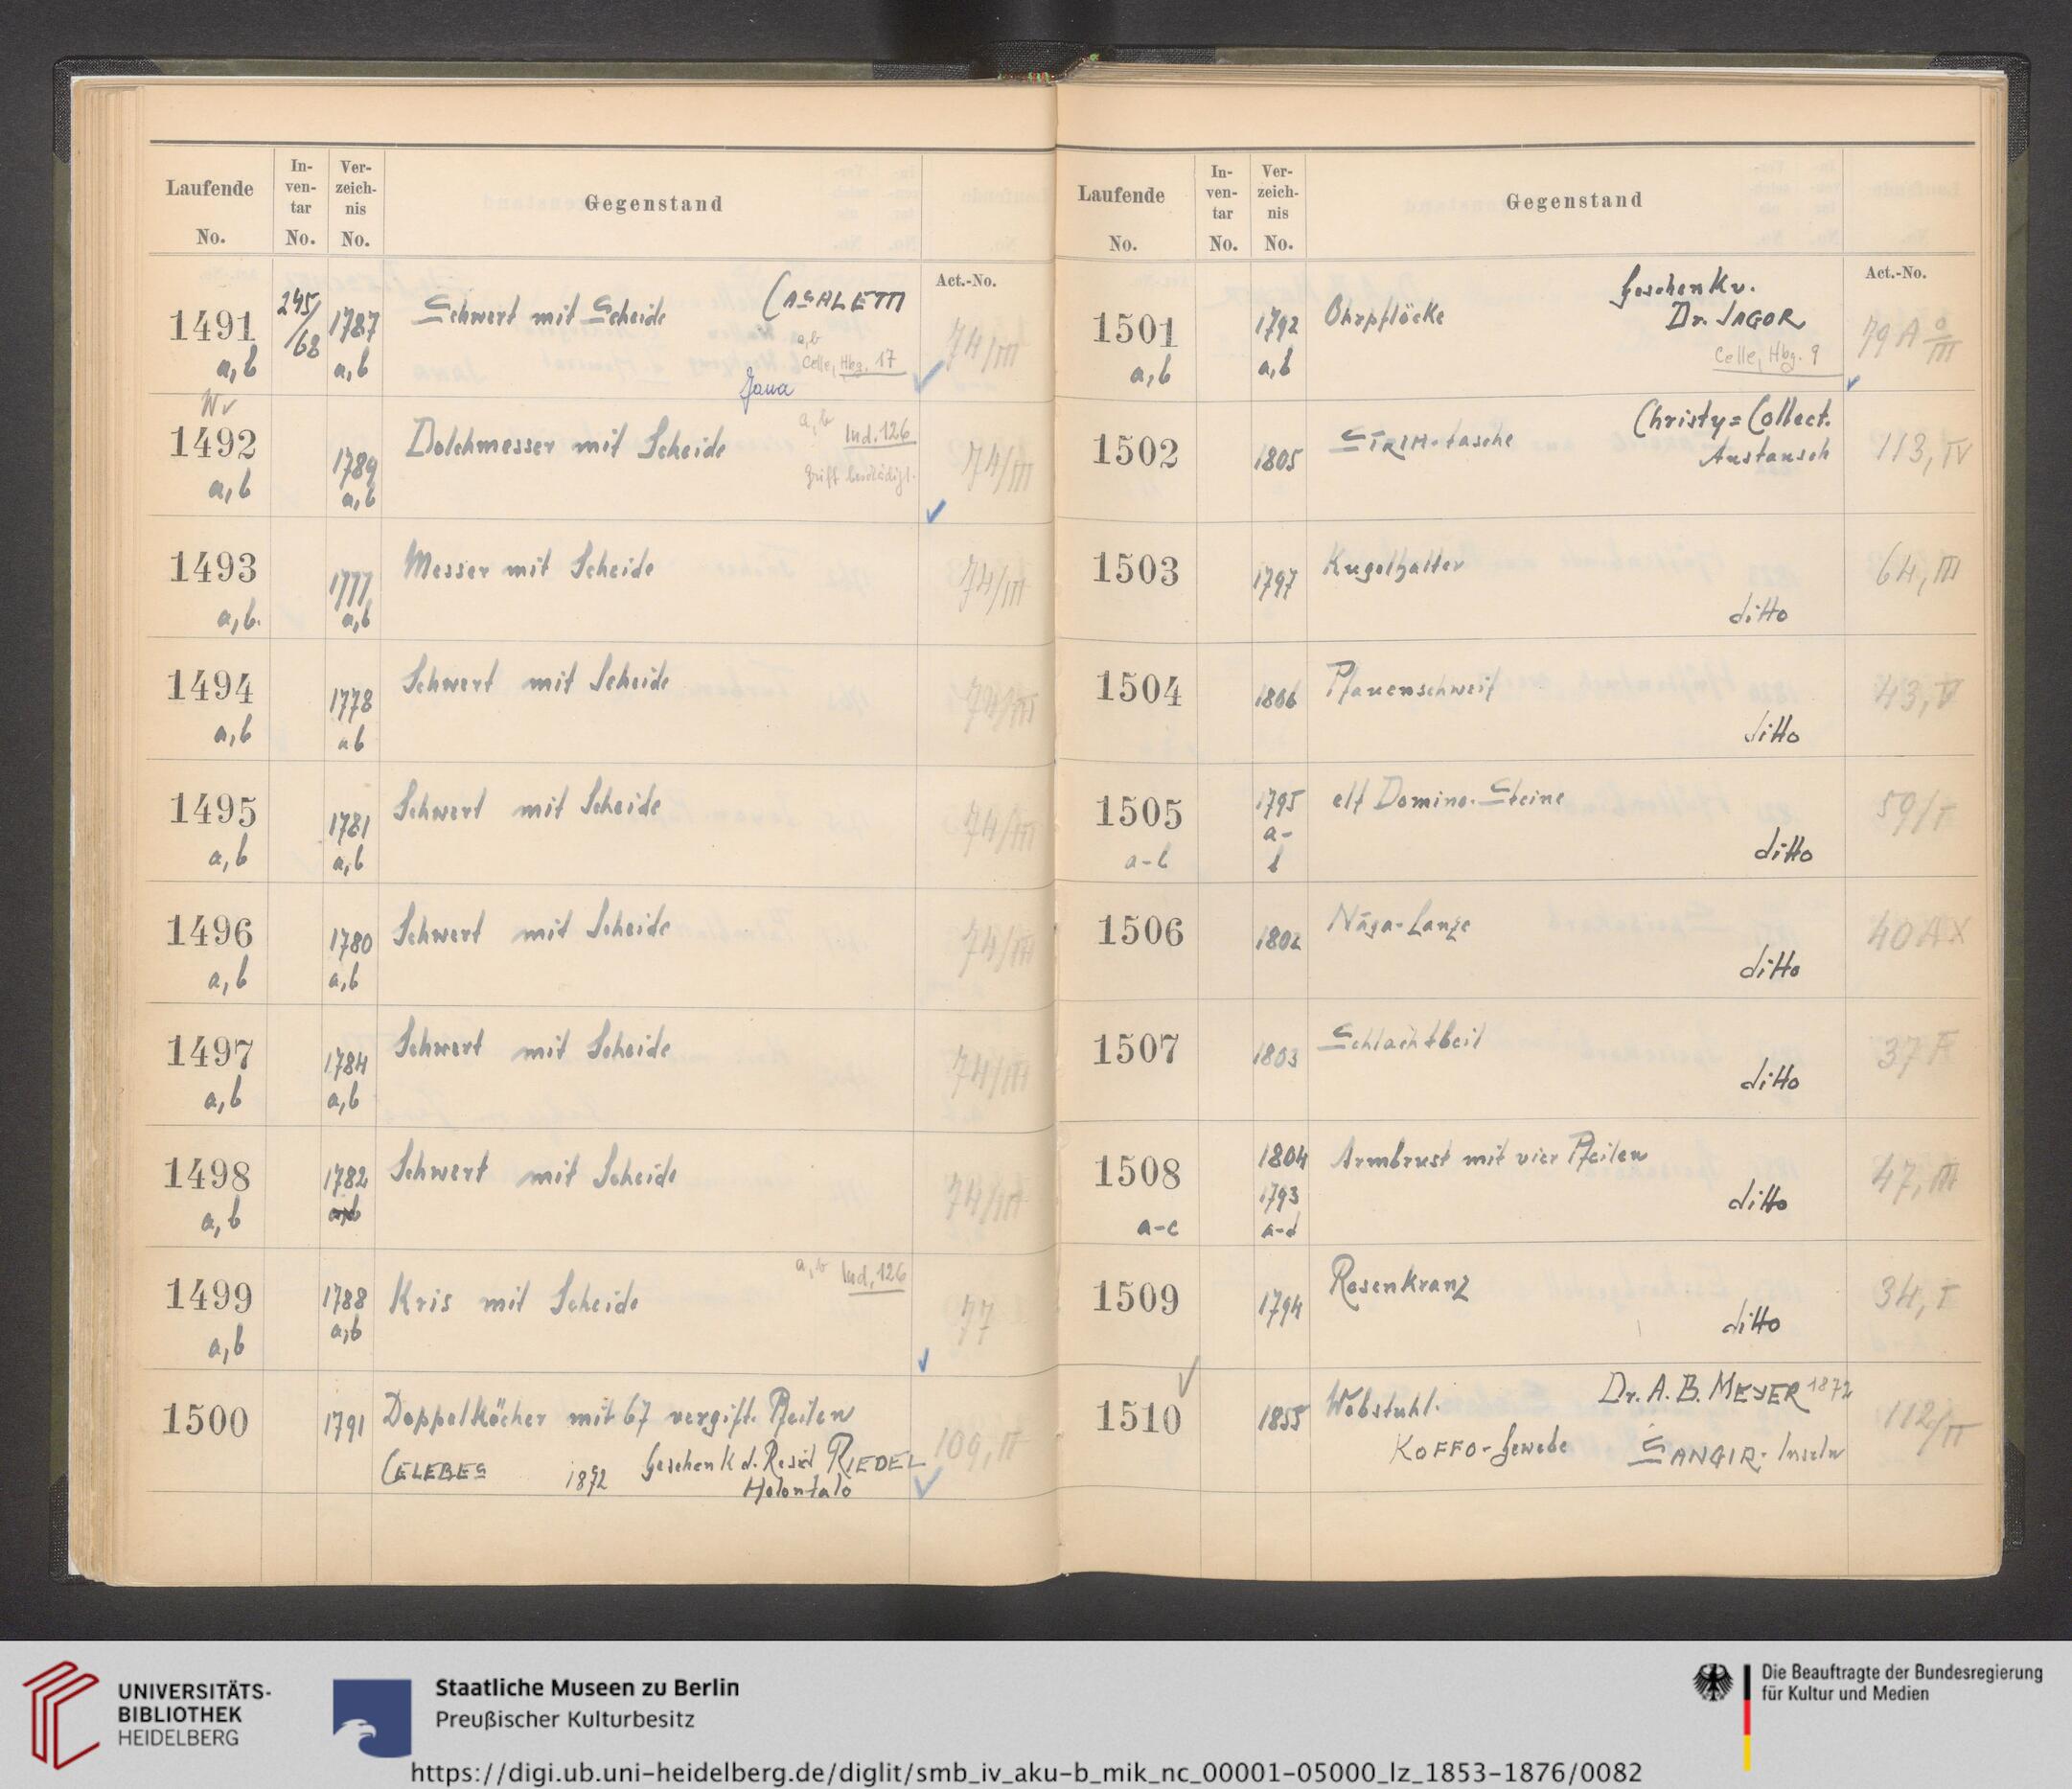 Laufende No.
In-ven-tar No.
Ver-zeich-nis No.
Gegenstand
Act.-No.
1491 a,b
245/68
1787 a,b
Schwert mit Scheide
CASALETTI
a,b
Celle, Hbg. 17
Java
74/III
1492 a,b
1789 a,b
Dolchmesser mit Scheide
a,b Ind. 126
Griff beschädigt.
74/III
1493 a,b.
1777 a,b
Messer mit Scheide
74/III
1494 a,b
1778 ab
Schwert mit Scheide
74/III
1495 a,b
1781 a,b
Schwert mit Scheide
74/III
1496 a,b
1780 a,b
Schwert mit Scheide
74/III
1497 a,b
1784 a,b
Schwert mit Scheide
74/III
1498 a,b
1782
Schwert mit Scheide
74/III
1499 a,b
1788 a,b
Kris mit Scheide
a,b Ind. 126
77
1500
1791
Doppelköcher mit 67 vergift. Pfeilen
CELEBES 1872 Geschenk d. Resid RIEDEL
Holontalo
109, II
Laufende No.
In-ven-tar No.
Ver-zeich-nis No.
Gegenstand
Act.-No.
1501 a,b
1792 a,b
Ohrpflöcke
Geschenk v.
Dr. JAGOR
Celle, Hbg. 9
79 A
1502
1805
SĪRIH-tasche
Christy=Collect.
Austausch
113, IV
1503
1797
Kugelhalter
ditto
64, III
1504
1806
Pfauenschweif
ditto
43, V
1505 a-b
1795 a-b
elf Domino-Steine
ditto
59/I
1506
1802
Nāga-Lanze
ditto
40 A X
1507
1803
Schlachtbeil
ditto
37
1508 a-e
1804
1793 a-d
Armbrust mit vier Pfeilen
ditto
47, III
1509
1794
Rosenkranz
ditto
34, I
1510
1855
Webstuhl.
Dr. A. B. MEYER 1872
KOFFO-Gewebe SANGIR-Inseln
112/II
UNIVERSITÄTS-
BIBLIOTHEK
HEIDELBERG
Staatliche Museen zu Berlin
Preußischer Kulturbesitz
Die Beauftragte der Bundesregierung
für Kultur und Medien
https://digi.ub.uni-heidelberg.de/diglit/smb_iv_aku-b_mik_nc_00001-05000_lz_1853-1876/0082